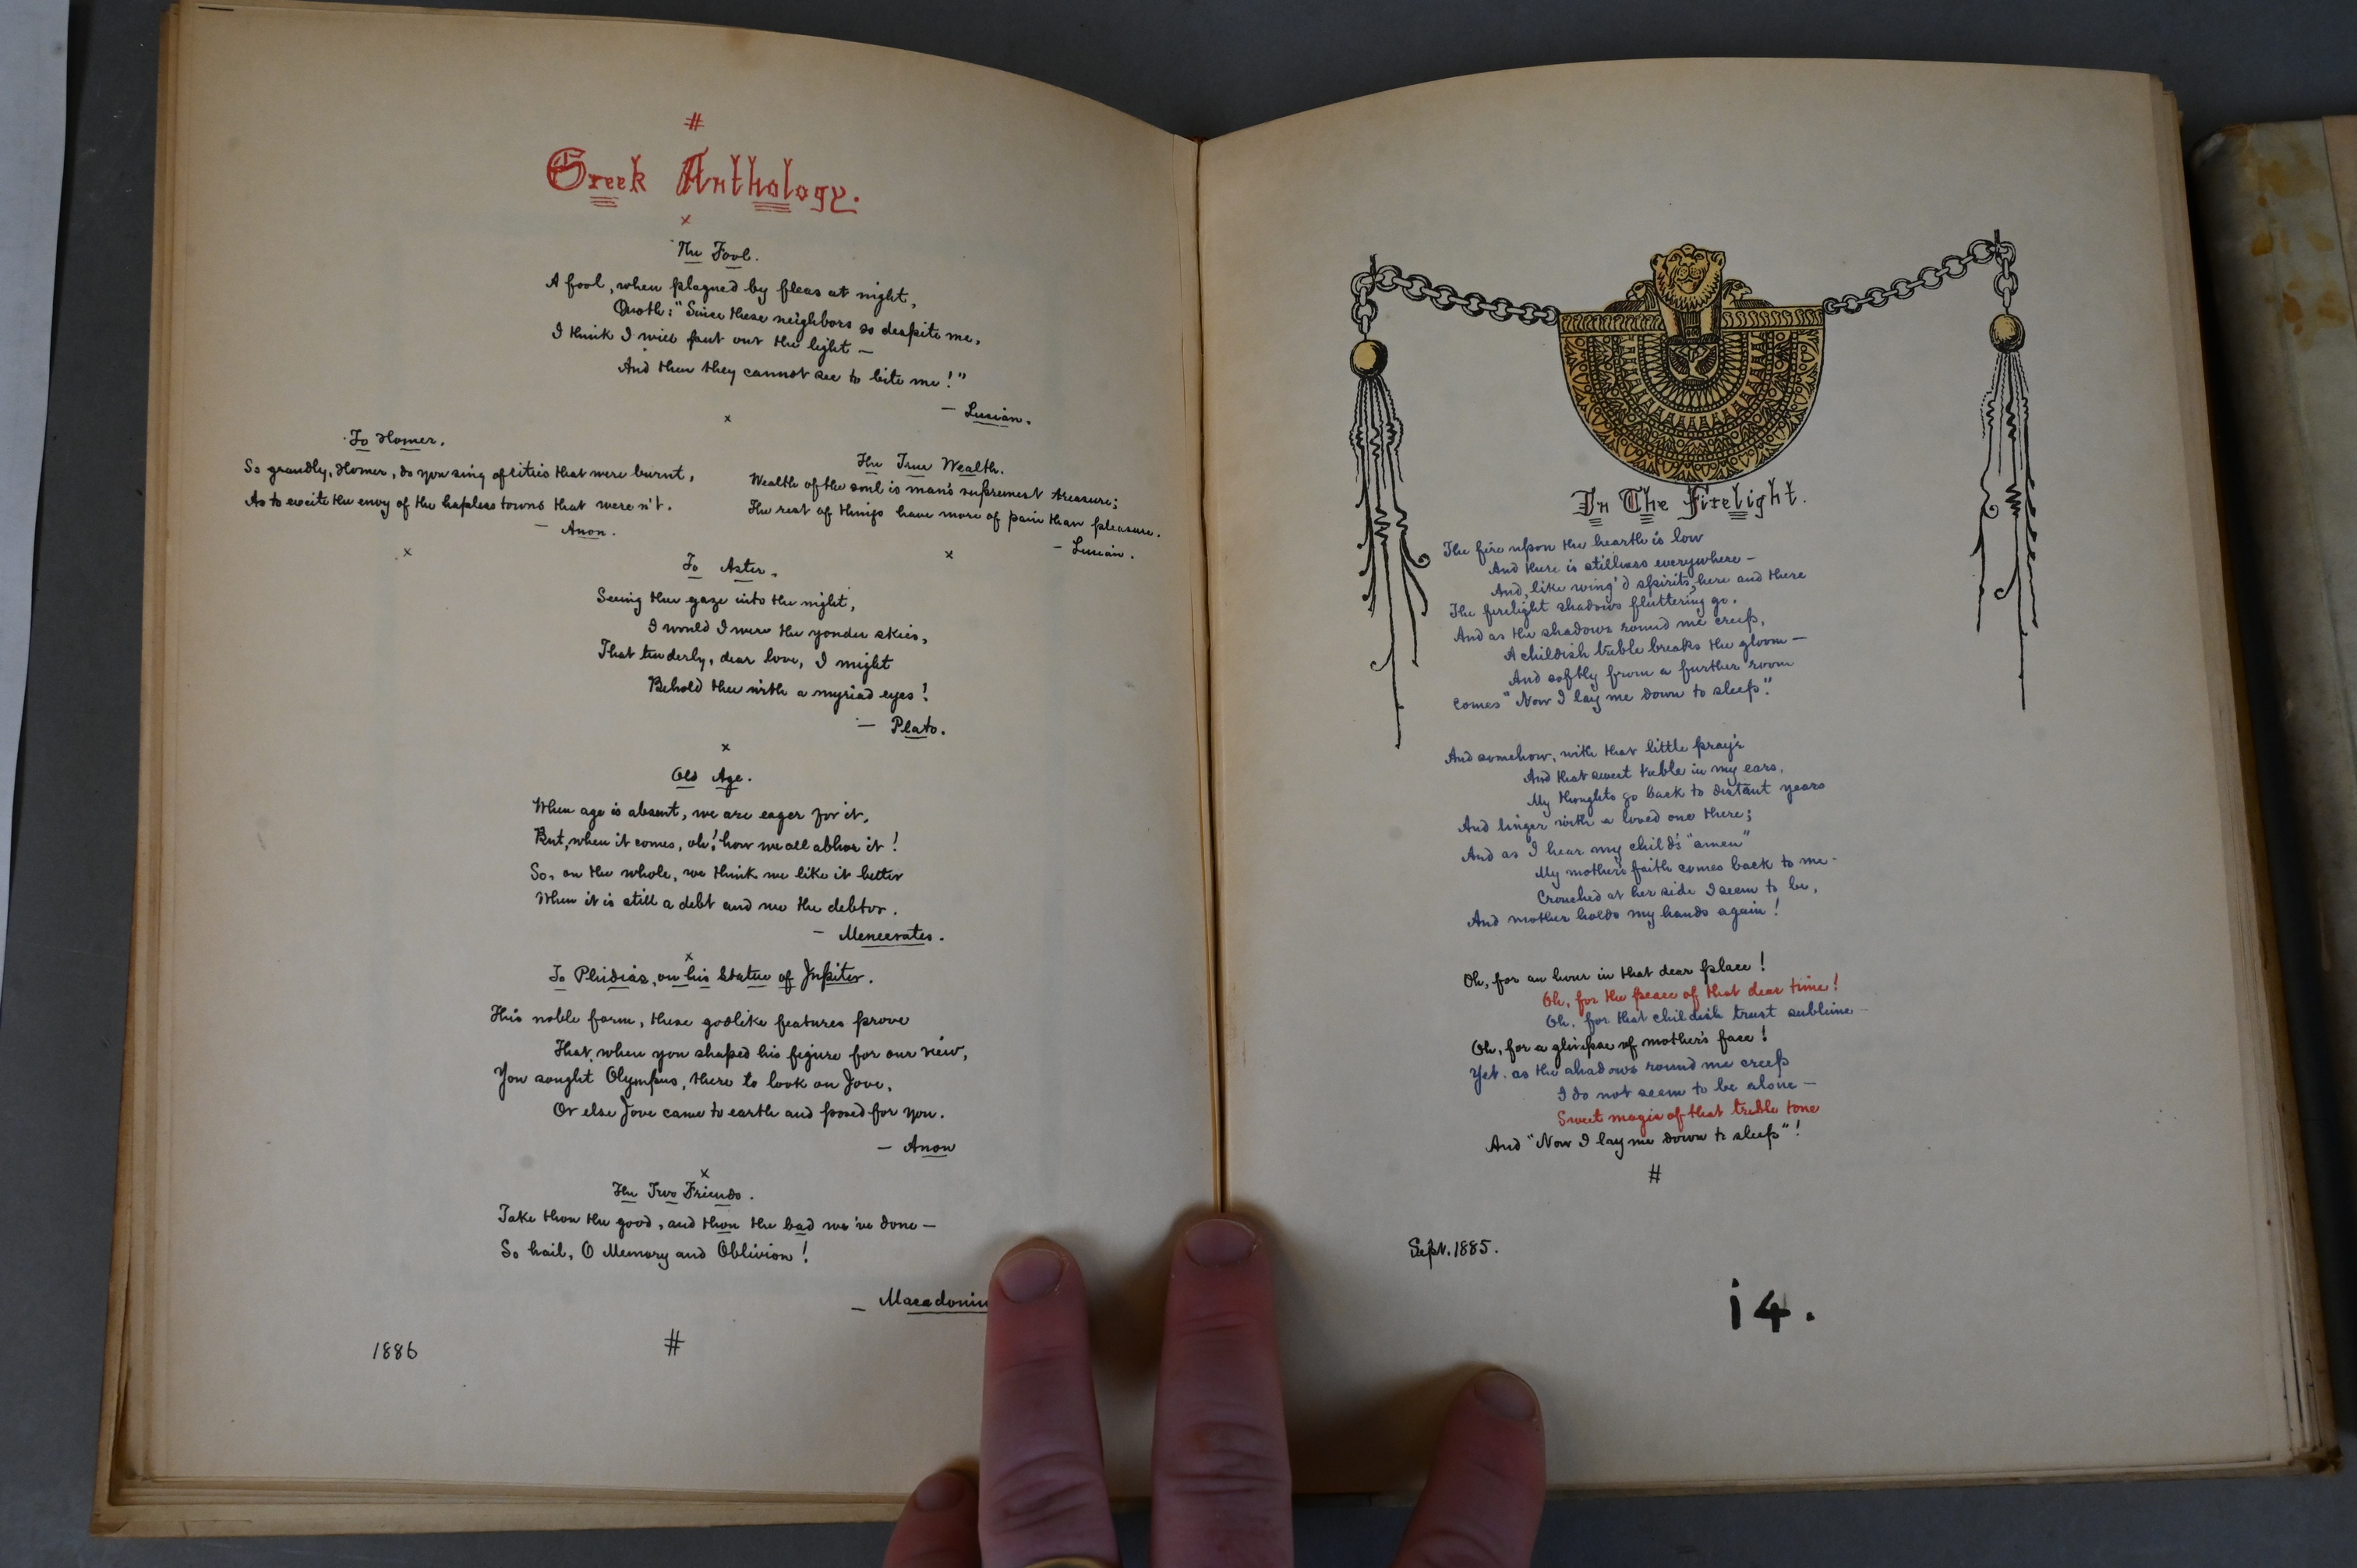 #
Greek Anthology.
x
The Fool.
A fool, when plagued by fleas at night,
Quoth: "Since these neighbors so despite me,
I think I will put out the light —
And then they cannot see to bite me!"
— Lucian.
x
To Homer.
So grandly, Homer, do you sing of cities that were burnt,
As to excite the envy of the hapless towns that were n't.
— Anon.
x
The True Wealth.
Wealth of the soul is man's supremest treasure;
The rest of things have more of pain than pleasure.
— Lucian.
x
To Aster.
Seeing thee gaze into the night,
I would I were the yonder skies,
That tenderly, dear love, I might
Behold thee with a myriad eyes!
— Plato.
x
Old Age.
When age is absent, we are eager for it,
But, when it comes, oh! how we all abhor it!
So, on the whole, we think we like it better
When it is still a debt and we the debtor.
— Menecrates.
x
To Phidias, on his statue of Jupiter.
His noble form, these godlike features prove
That, when you shaped his figure for our view,
You sought Olympus, there to look on Jove,
Or else Jove came to earth and posed for you.
— Anon
x
The Two Friends.
Take thou the good, and thou the bad we've done —
So hail, O Memory and Oblivion!
— Macedoniu
1886
#
In The Firelight.
The fire upon the hearth is low
And there is stillness everywhere —
And, like wing'd spirits, here and there
The firelight shadows fluttering go.
And as the shadows round me creep,
A childish treble breaks the gloom —
And softly from a further room
Comes "Now I lay me down to sleep."
And somehow, with that little pray'r
And that sweet treble in my ears,
My thoughts go back to distant years
And linger with a loved one there;
And as I hear my child's "amen"
My mother's faith comes back to me -
Crouched at her side I seem to be,
And mother holds my hands again!
Oh, for an hour in that dear place!
Oh, for the peace of that dear time!
Oh, for that childish trust sublime —
Oh, for a glimpse of mother's face!
Yet, as the shadows round me creep
I do not seem to be alone —
Sweet magic of that treble tone
And "Now I lay me down to sleep"!
#
Sept. 1885.
i4.